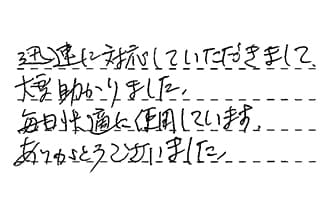 迅速に対応していただきまして、
大変助かりました。
毎日快適に使用しています。
ありがとうございました。